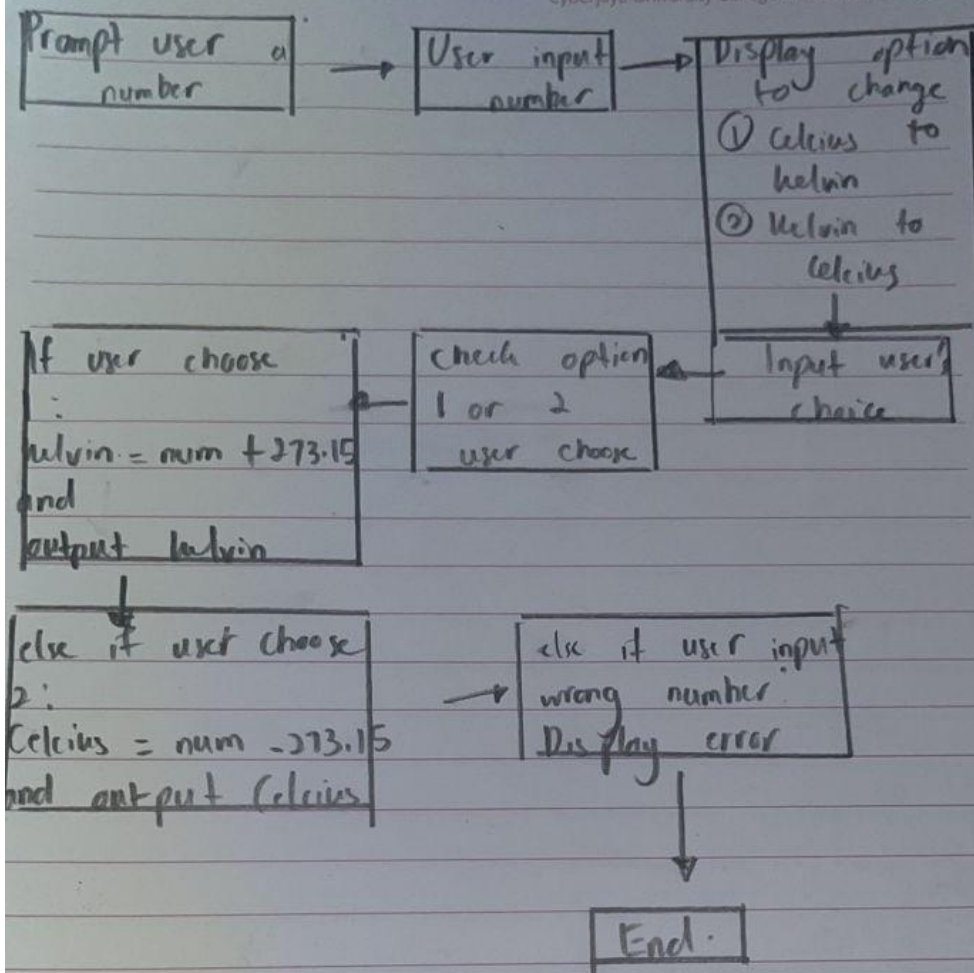 Prompt user a
number
User input
number
Display option
to change
① Celcius to
kelvin
② Kelvin to
Celcius
Input user's
choice
check option
1 or 2
user choose
If user choose
:
kelvin = num + 273.15
and
output kelvin
else if user choose
2:
Celcius = num - 273.15
and output Celcius
else if user input
wrong number.
Display error
End.